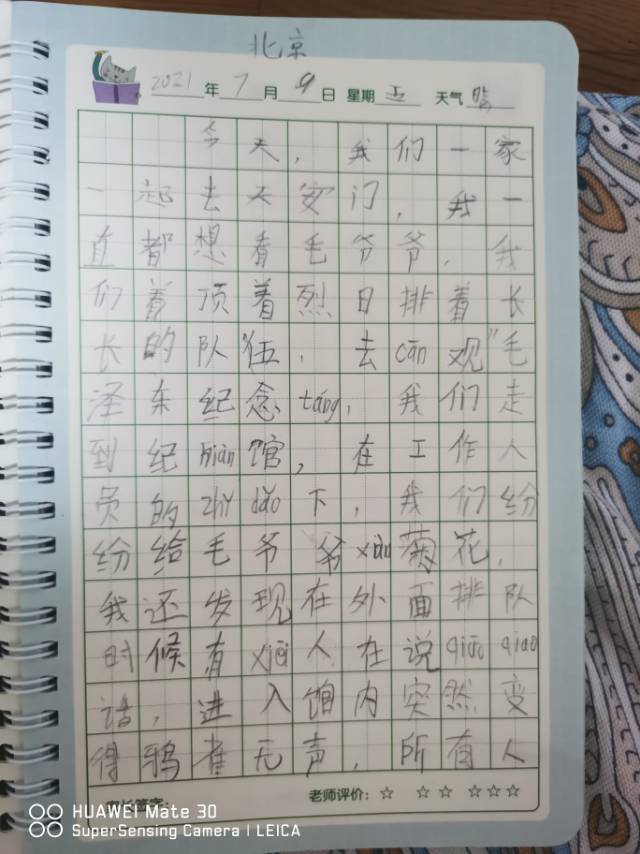 北京
2021年7月9日 星期五 天气晴
今天，我们一家
一起去天安门，我一
直都想看毛爷爷，我
们着顶着烈日排着长
长的队伍，去cān观"毛
泽东纪念táng，我们走
到纪niàn馆，在工作人
员的zhǐ dǎo下，我们纷
纷给毛爷爷xiàn菊花，
我还发现在外面排队
时候有xiē人在说qiāo qiao
话，进入馆内突然变
得鸦雀无声，所有人
家长签字：
老师评价：☆ ☆☆ ☆☆☆
HUAWEI Mate 30
SuperSensing Camera | LEICA